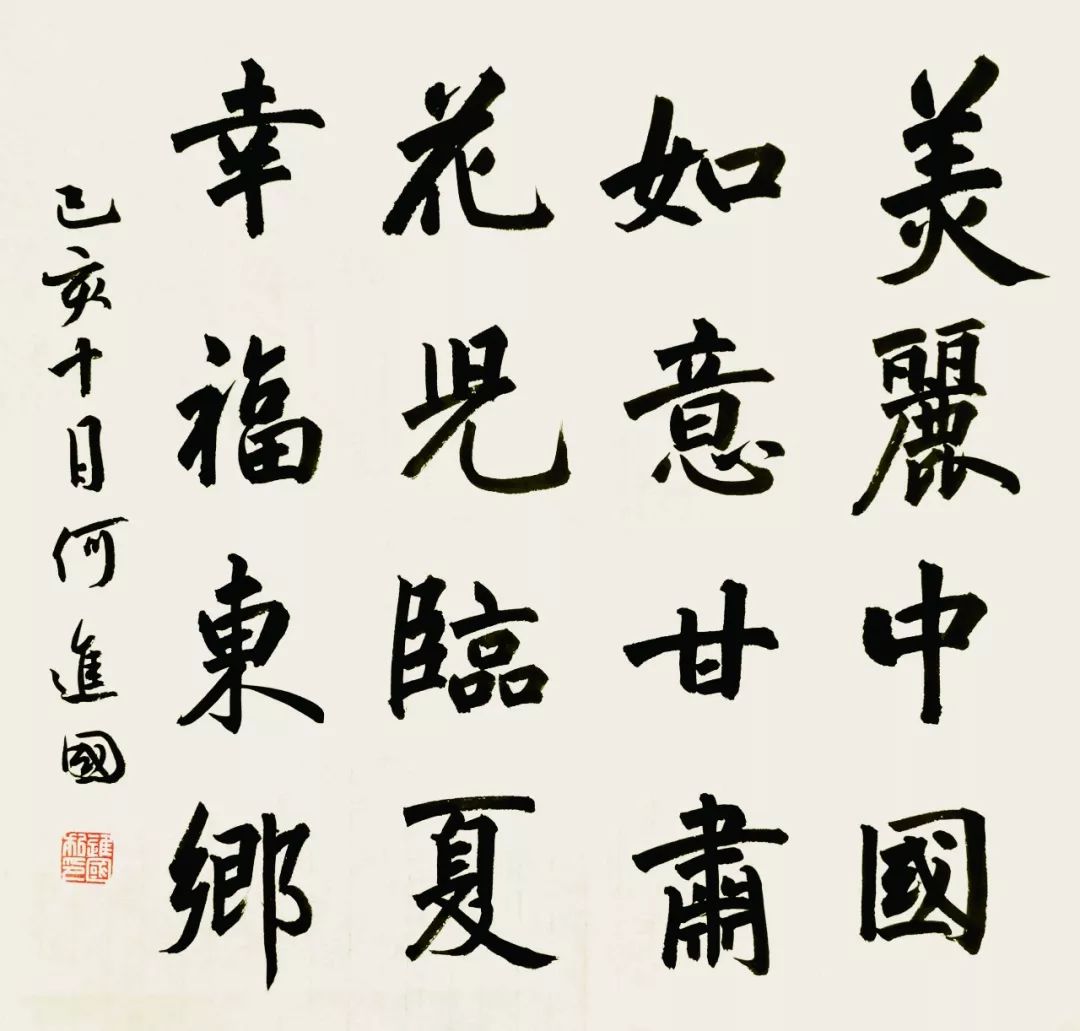 美麗中國
如意甘肅
花兒臨夏
幸福東鄉
己亥十月何進國
進國私印